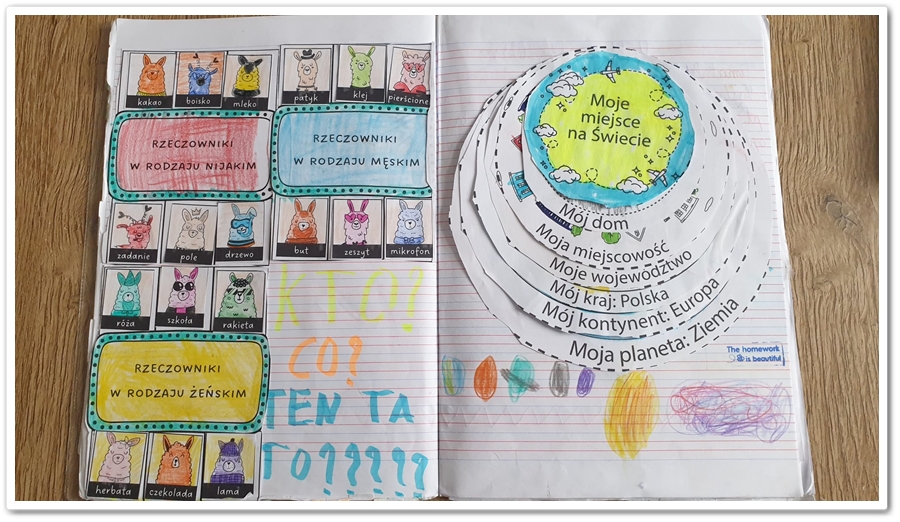 kakao boisko mleko
patyk klej pierścione
RZECZOWNIKI
W RODZAJU NIJAKIM
RZECZOWNIKI
W RODZAJU MĘSKIM
zadanie pole drzewo
but zeszyt mikrofon
róża szkoła rakieta
RZECZOWNIKI
W RODZAJU ŻEŃSKIM
herbata czekolada lama
KTO?
CO?
TEN TA
TO??????
Moje
miejsce
na Świecie
Mój dom
Moja miejscowość
Moje województwo
Mój kraj: Polska
Mój kontynent: Europa
Moja planeta: Ziemia
The homework
is beautiful